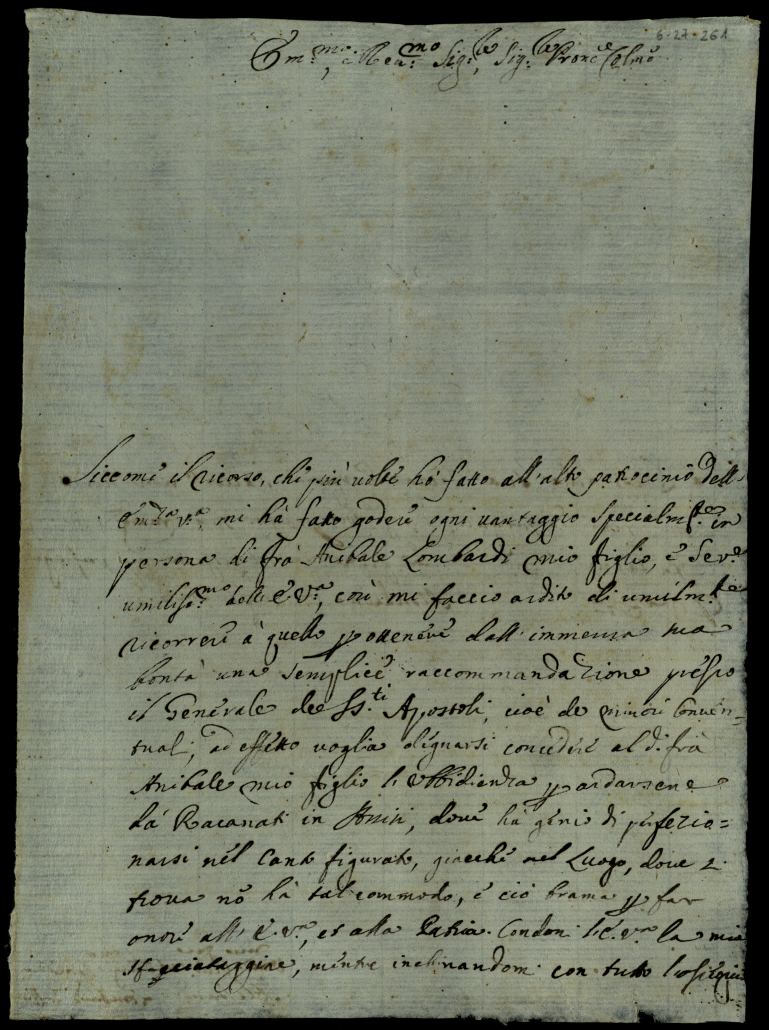 6-27-261
Em.mo, e Reu.mo Sig.re, Sig.re Prone Colmo
Siccome il ricorso, che più volte hò fatto all'alto patrocinio dell'
Emza Vra, mi hà fatto godere ogni vantaggio specialmte in
persona di frà Anibale Lombardi mio figlio, e Serve
umiliss.mo dell'E. Vra, così mi faccio ardito di umilmte
ricorrere à quello p ottenere dall'immensa sua
bontà una semplice raccommandazione presso
il Generale de SS.ti Apostoli, cioè de minori Conven=
tuali, ad effetto voglia degnarsi concedere al d. frà
Anibale mio figlio l'ubbidienza p andarsene
da Racanati in , dove hà genio di perfezio=
narsi nel Canto figurato, giacche nel Luogo, dove si
trova nō hà tal commodo, e ciò brama p far
onore all'E. Vra, et alla Patria. Condoni l'E. Vra la mia
sfacciataggine, mentre inchinandomi con tutto l'ossequio